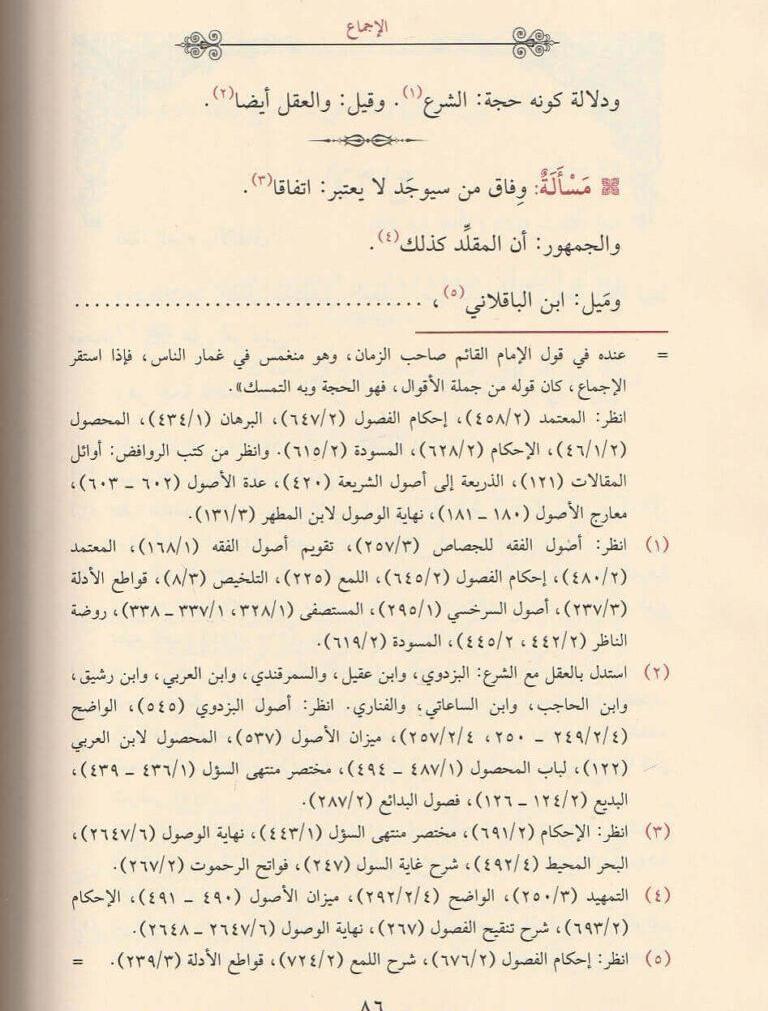 الإجماع
ودلالة كونه حجة: الشرع(١). وقيل: والعقل أيضا(٢).
مَسْأَلَةٌ: وِفاق من سيوجَد لا يعتبر: اتفاقا(٣).
والجمهور: أن المقلِّد كذلك(٤).
ومَيل: ابن الباقلاني(٥)، ..................................
= عنده في قول الإمام القائم صاحب الزمان، وهو منغمس في غمار الناس، فإذا استقر
الإجماع، كان قوله من جملة الأقوال، فهو الحجة وبه التمسك».
انظر: المعتمد (٤٥٨/٢)، إحكام الفصول (٦٤٧/٢)، البرهان (٤٣٤/١)، المحصول
(٤٦/١/٢)، الإحكام (٦٢٨/٢)، المسودة (٦١٥/٢). وانظر من كتب الروافض: أوائل
المقالات (١٢١)، الذريعة إلى أصول الشريعة (٤٢٠)، عدة الأصول (٦٠٢ ـ ٦٠٣)،
معارج الأصول (١٨٠ ـ ١٨١)، نهاية الوصول لابن المطهر (١٣١/٣).
(١) انظر: أصول الفقه للجصاص (٢٥٧/٣)، تقويم أصول الفقه (١٦٨/١)، المعتمد
(٤٨٠/٢)، إحكام الفصول (٦٤٥/٢)، اللمع (٢٢٥)، التلخيص (٨/٣)، قواطع الأدلة
(٢٣٧/٣)، أصول السرخسي (٢٩٥/١)، المستصفى (٣٢٨/١، ٣٣٧/١ ـ ٣٣٨)، روضة
الناظر (٤٤٢/٢، ٤٤٥/٢)، المسودة (٦١٩/٢).
(٢) استدل بالعقل مع الشرع: البزدوي، وابن عقيل، والسمرقندي، وابن العربي، وابن رشيق،
وابن الحاجب، وابن الساعاتي، والفناري. انظر: أصول البزدوي (٥٤٥)، الواضح
(٢٤٩/٢/٤ ـ ٢٥٠، ٢٥٧/٢/٤)، ميزان الأصول (٥٣٧)، المحصول لابن العربي
(١٢٢)، لباب المحصول (٤٨٧/١ ـ ٤٩٤)، مختصر منتهى السؤل (٤٣٦/١ ـ ٤٣٩)،
البديع (١٢٤/٢ ـ ١٢٦)، فصول البدائع (٢٨٧/٢).
(٣) انظر: الإحكام (٦٩١/٢)، مختصر منتهى السؤل (٤٤٣/١)، نهاية الوصول (٢٦٤٧/٦)،
البحر المحيط (٤٩٢/٤)، شرح غاية السول (٢٤٧)، فواتح الرحموت (٢٦٧/٢).
(٤) التمهيد (٢٥٠/٣)، الواضح (٢٩٢/٢/٤)، ميزان الأصول (٤٩٠ ـ ٤٩١)، الإحكام
(٦٩٣/٢)، شرح تنقيح الفصول (٢٦٧)، نهاية الوصول (٢٦٤٧/٦ ـ ٢٦٤٨).
(٥) انظر: إحكام الفصول (٦٧٦/٢)، شرح اللمع (٧٢٤/٢)، قواطع الأدلة (٢٣٩/٣). =
٨٦